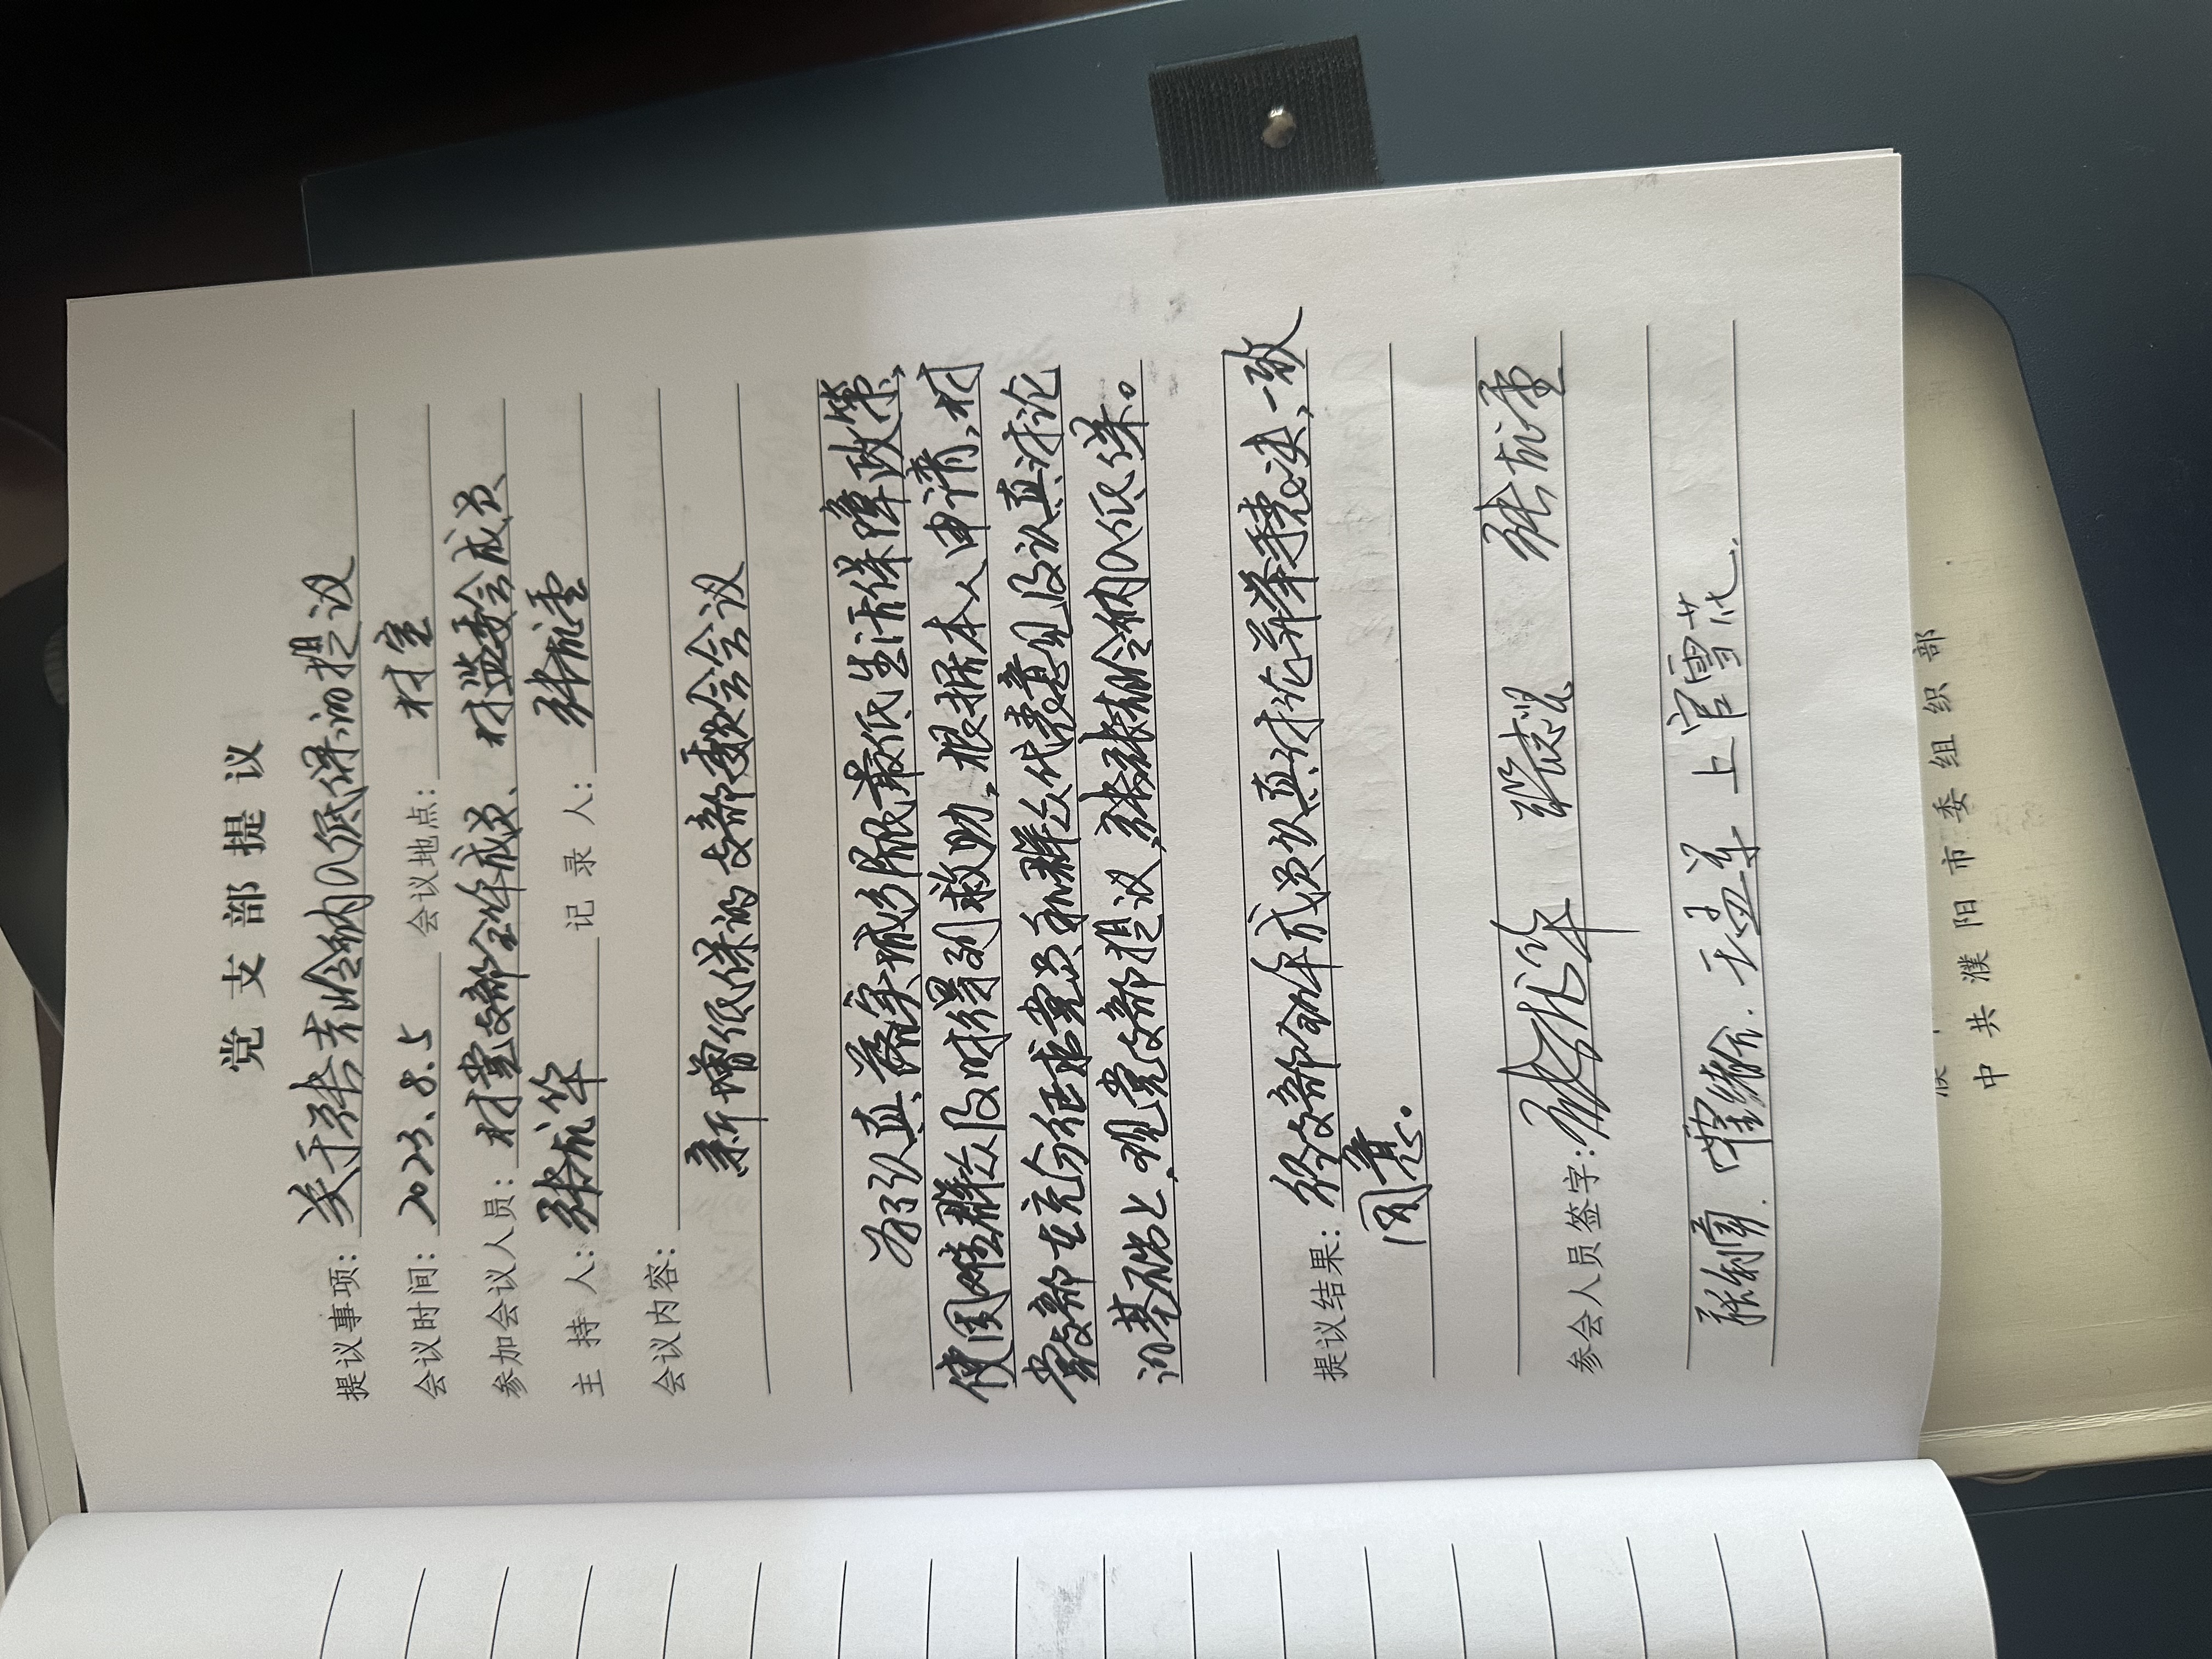 党支部提议
提议事项: 关于张志岭纳入低保的提议
会议时间: 2023.8.5 会议地点: 村室
参加会议人员: 村党支部全体成员、村监委会成员
主持人: 张 华 记录人: 张
会议内容:
新增低保的支部委员会会议
为了认真落实城乡居民最低生活保障政策,
使困难群众及时得到救助,根据本人申请,村
党支部在充分征求党员和群众代表意见及认真讨论
的基础上,现党支部提议,张张志岭纳入低保。
提议结果: 经支部全体成员认真讨论并举手表决,一致
同意。
参会人员签字: 张 华 张志 张
张利 王孟 上官雪花.
中共濮阳市委组织部